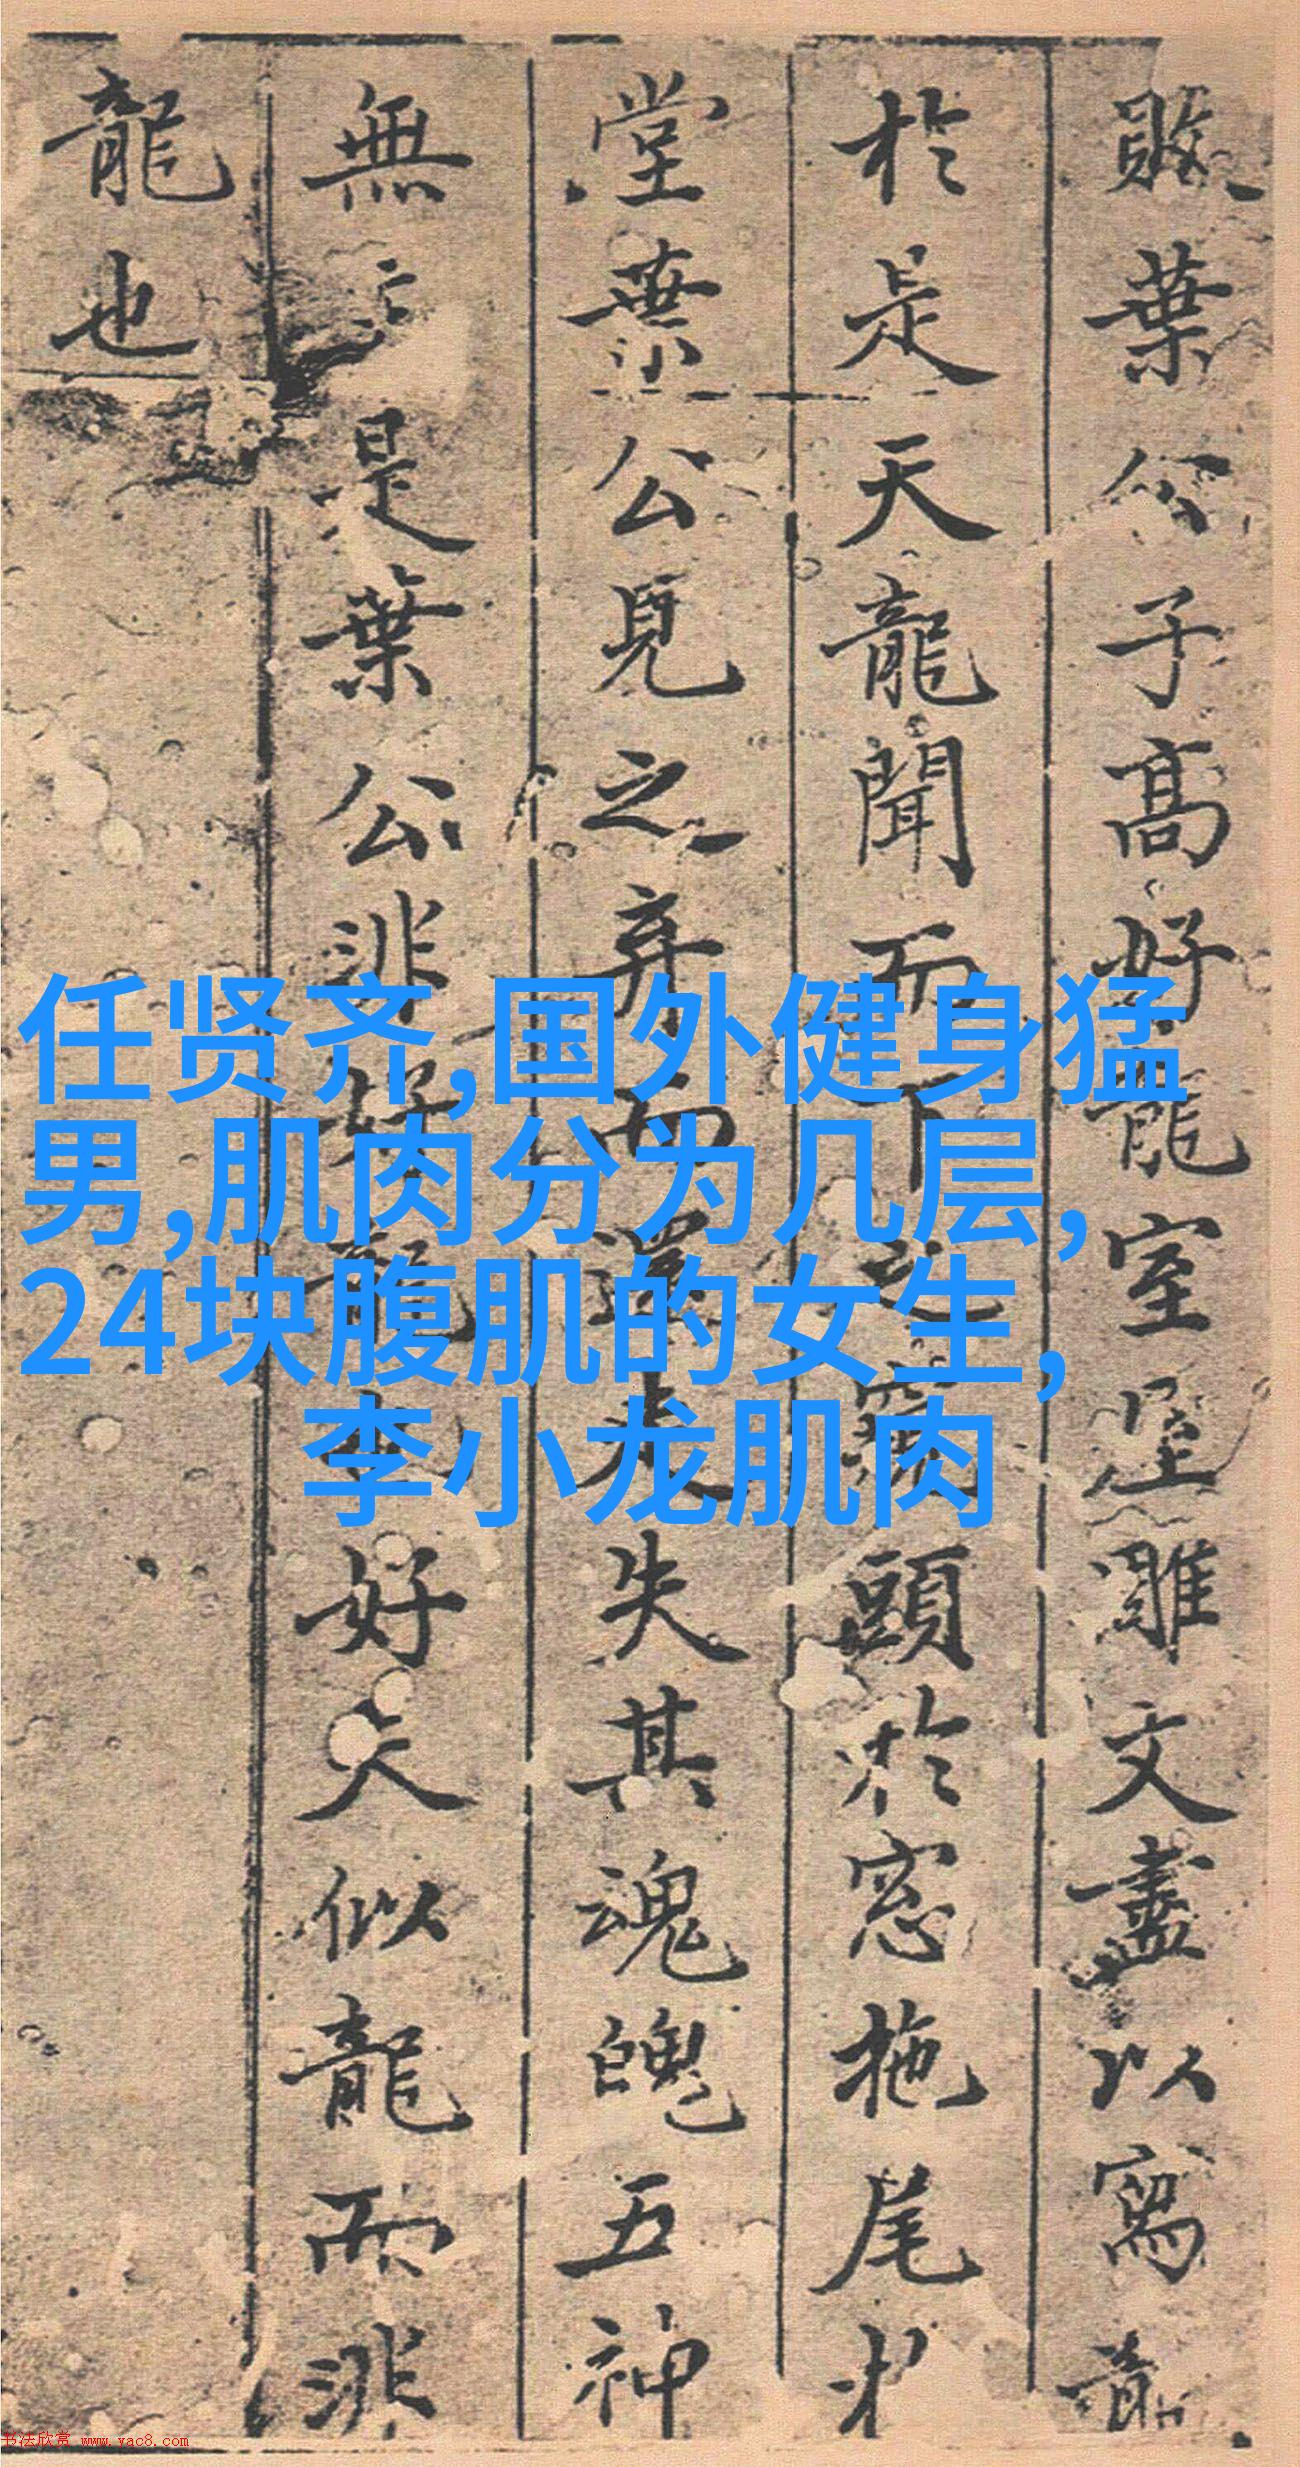 敗葉公子高好龍室雕文盡以寫龍
於是天龍聞而下之窺頭於窓拖尾於
堂葉公見之弃而還走失其魂魄五神
無主是葉公非好龍也好夫似龍而非
龍也
任贤齐,国外健身猛
男,肌肉分为几层,
24块腹肌的女生,
李小龙肌肉
书法欣赏 www.yac8.com